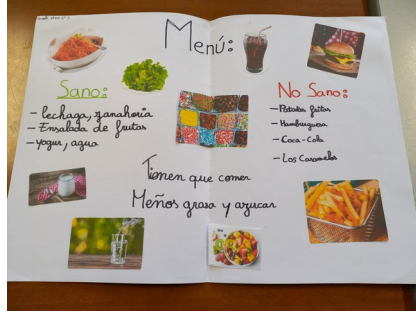 Menú:
Sano:
- lechaga, zanahoria
- Ensalada de frutas
- yogur, agua
No Sano:
- Patatas fritas
- Hamburguesa
- Coca-Cola
- Los Caramelos
Tienen que comer
Meños grasa y azucar